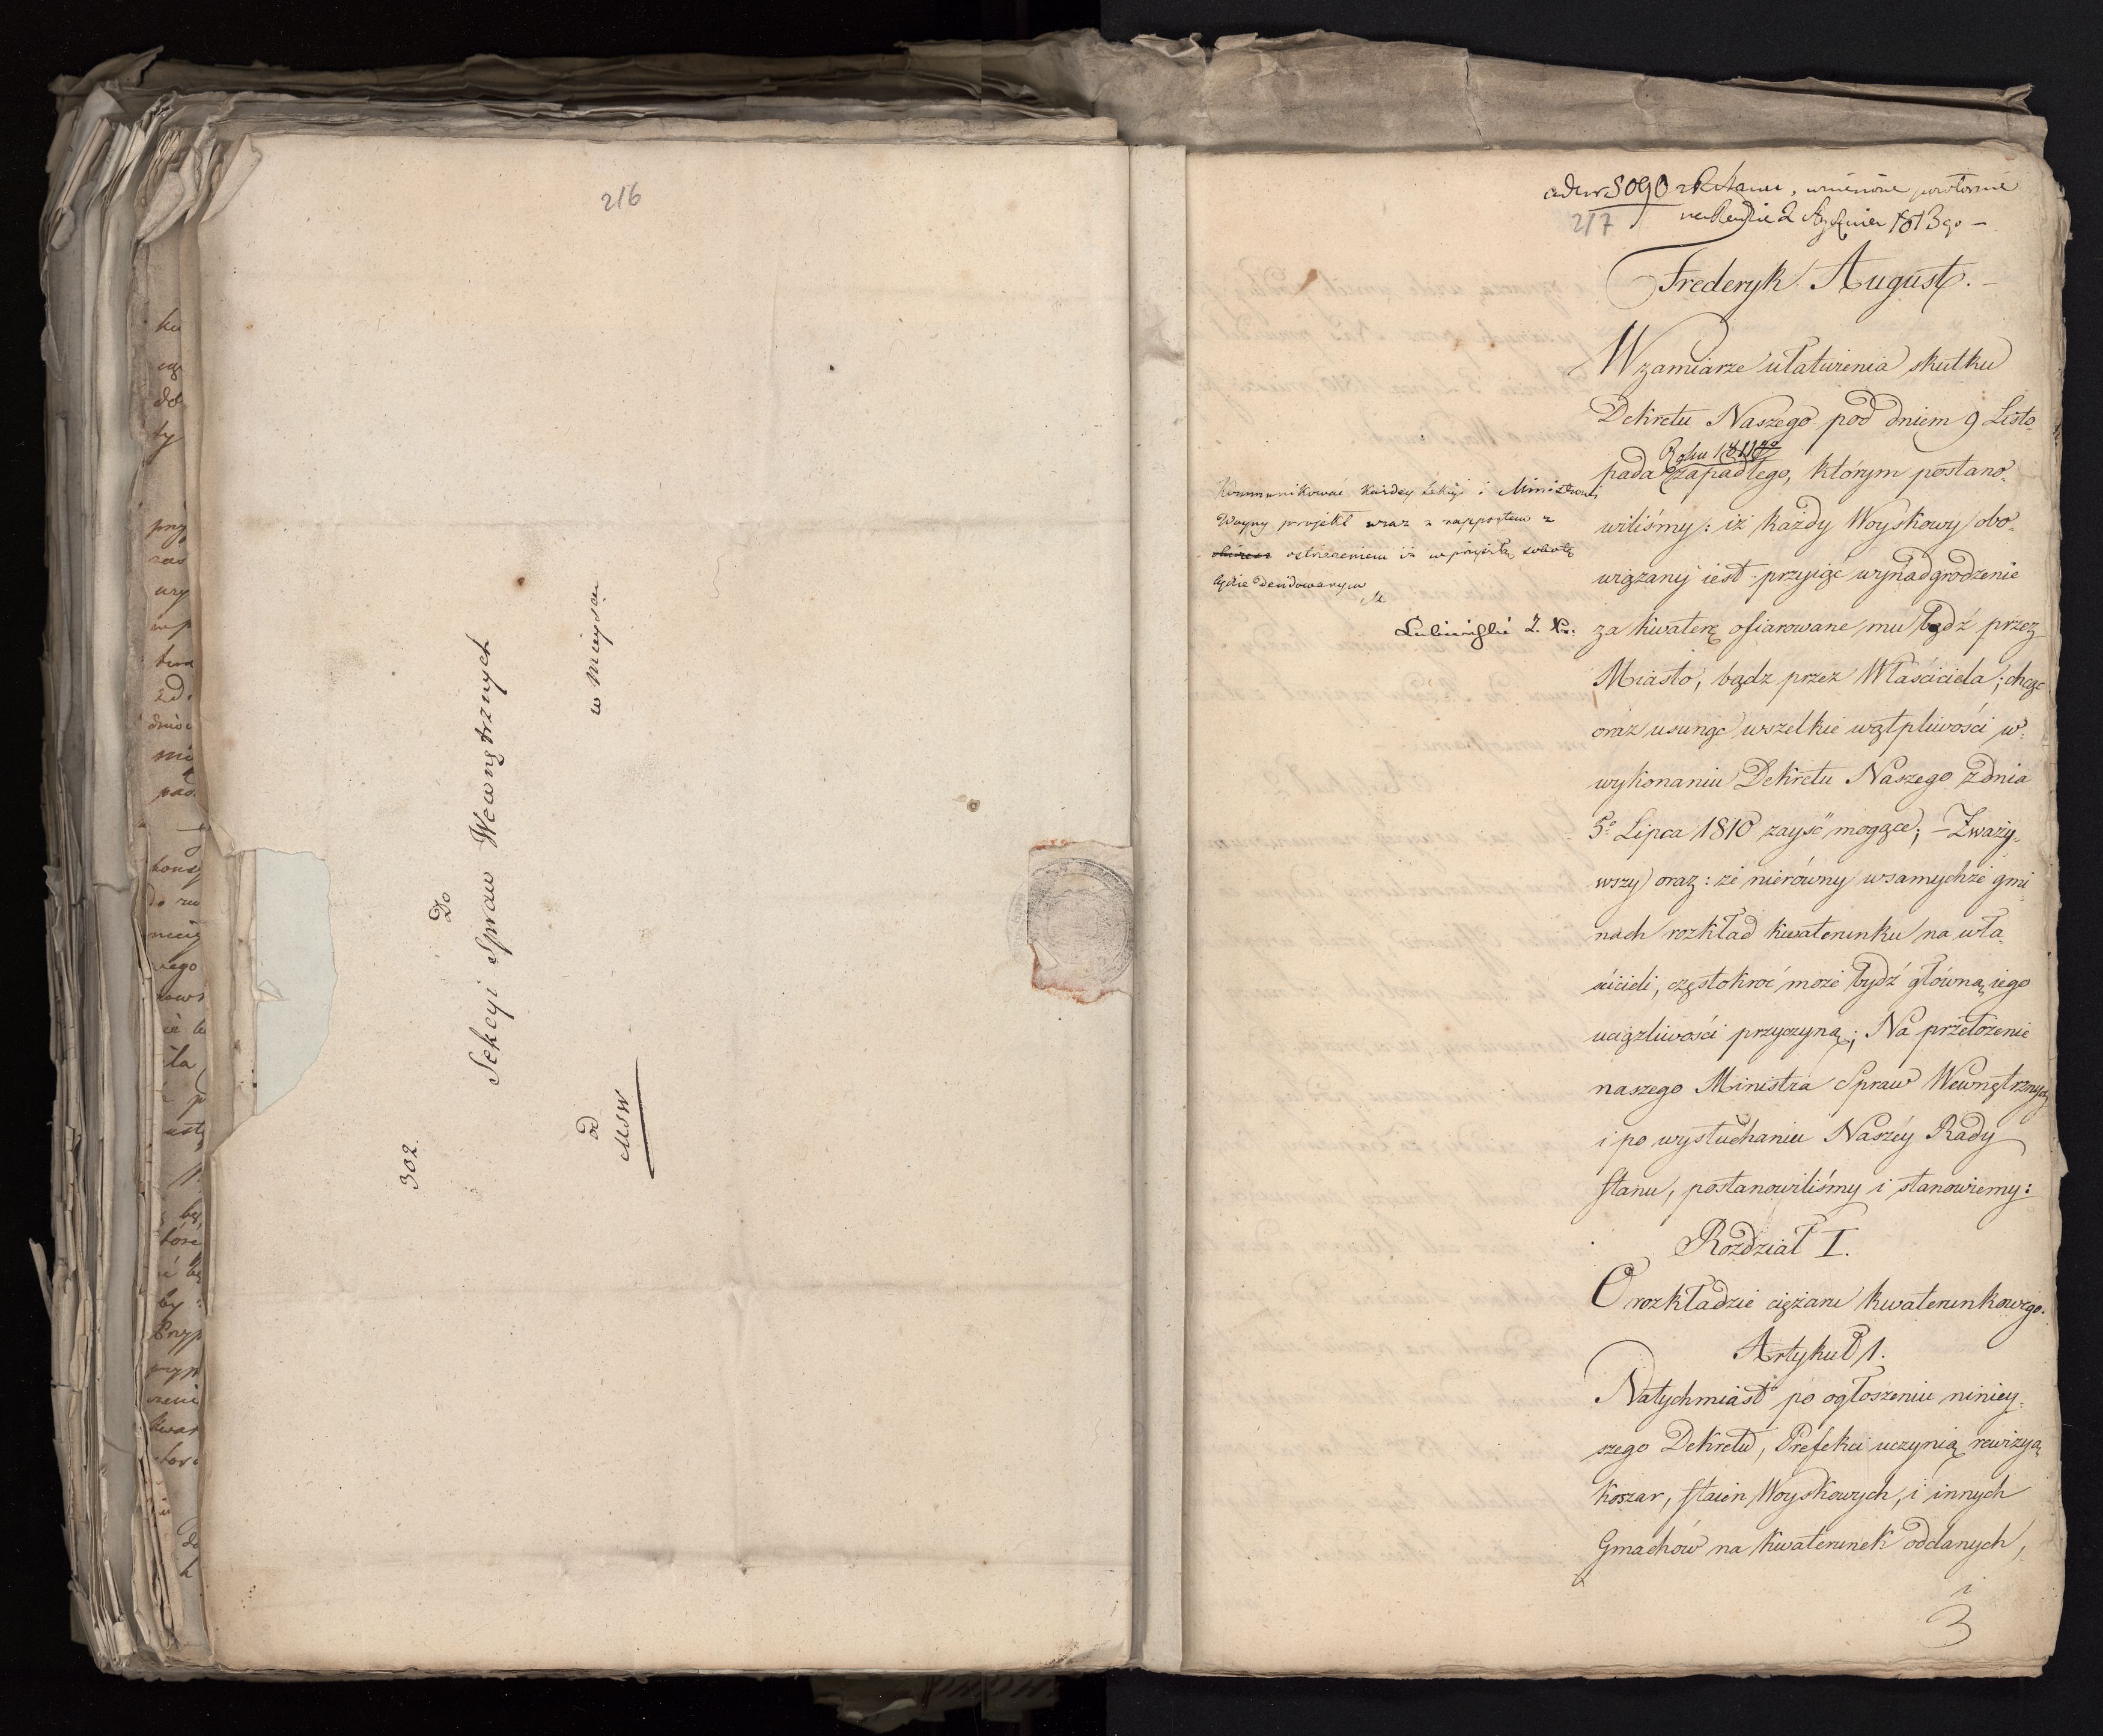 216
Do
Sekcyi Spraw Wewnętrznych
w Mieyscu
od
MSW
302.
ad nr 8090 wniesione powtornie
217 2 Stycznia 1813 go —
Frederyk August. —
W zamiarze ułatwienia skutku
Dekretu Naszego pod dniem 9 Listo-
Roku 1811go
pada zapadłego, którym postano-
wiliśmy: iż każdy Woyskowy obo-
wiązany iest przyiąć wynadgrodzenie
za kwaterę ofiarowane mu bądź przez
Miasto, bądz przez Właściciela; chcąc
oraz usunąc wszelkie wątpliwości w
wykonaniu Dekretu Naszego z dnia
5o Lipca 1810 zayść mogące; — Zważy-
wszy oraz: że nierówny w samychże gmi-
nach rozkład kwaterunku na wła-
ścicieli, częstokroć może bydź główną iego
uciązliwości przyczyną; Na przełożenie
naszego Ministra Spraw Wewnętrznych
i po wysłuchaniu Naszéy Rady
Stanu, postanowiliśmy i stanowiemy:
Rozdział I.
O rozkładzie ciężaru kwaterunkowego.
Artykuł 1.
Natychmiast po ogłoszeniu niniey-
szego Dekretu, Prefekci uczynią rewizyą
Koszar, stain Woyskowych, i innych
Gmachów na kwaterunek oddanych,
i
3
Kommunikować każdey Sekcyi i Ministrowi
Woyny projekt wraz z rapportem z
ostrzeżeniem iż w przyszłą sobotę
będzie decidowanym
Lubieński